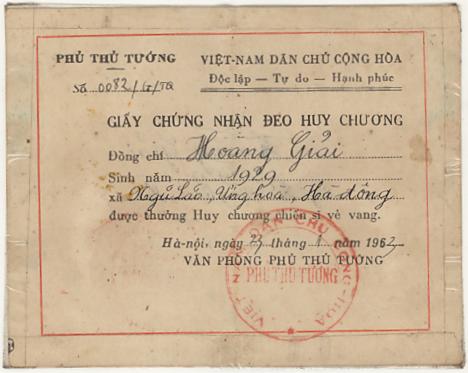 PHỦ THỦ TƯỚNG
VIỆT-NAM DÂN CHỦ CỘNG HÒA
Số 0082/
Độc lập — Tự do — Hạnh phúc
GIẤY CHỨNG NHẬN ĐEO HUY CHƯƠNG
Đồng chí Hoàng Giải
Sinh năm 1929
xã Ứng hoà, Hà đông
được thưởng Huy chương chiến sĩ vẻ vang.
Hà-nội, ngày 23 tháng 1 năm 1963
VĂN PHÒNG PHỦ THỦ TƯỚNG
VIỆT NAM DÂN CHỦ CỘNG-HÒA
PHỦ THỦ TƯỚNG